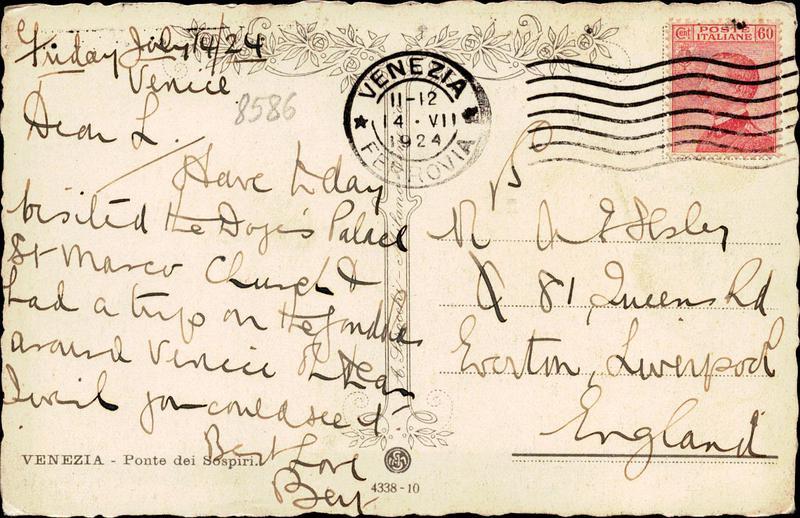 Friday July 14/24
Venice
8586
Dear L.
Have today
visited the Doge's Palace
St Marco Church &
had a trip on the Gondolas
around Venice
I wish you could see it
Best
Love
VENEZIA - Ponte dei Sospiri.
4338-10
VENEZIA
11-12
14 · VII
1924
FERROVIA
POSTE
ITALIANE
Cent 60
81, Queens Rd
Everton, Liverpool
England